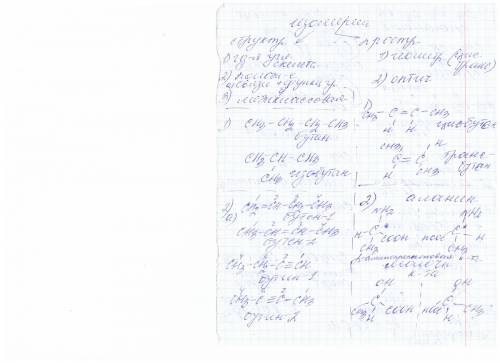 изомерия
структ.
1) угл. скелета
2) полож.
а) связи + функц. гр.
3) межклассовая
1) CH3-CH2-CH2-CH3
бутан
CH3-CH-CH3
CH3 изобутан
2)
а) CH2=CH-CH2-CH3
бутен-1
CH3-CH=CH-CH3
бутен-2
CH3-CH2-C≡CH
бутин-1
CH3-C≡C-CH3
бутин-2
простр.
1) геометр. (цис
транс)
2) оптич.
1) CH3-C=C-CH3
H H цисбутен
CH3 H
C=C транс-
H CH3 бутен
2) аланин
NH2 NH2
H-C*-COOH HOOC-C*-H
CH3 CH3
к-та
OH OH
CH3-C-COOH HOOC-C-CH3
H H